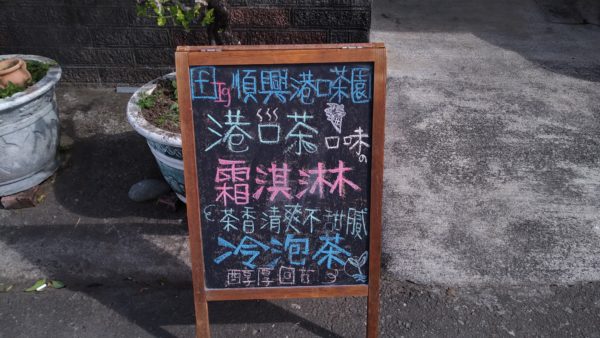 f Ig 順興港口茶園
港口茶口味の
霜淇淋
茶香清爽不甜膩
冷泡茶
醇厚回甘